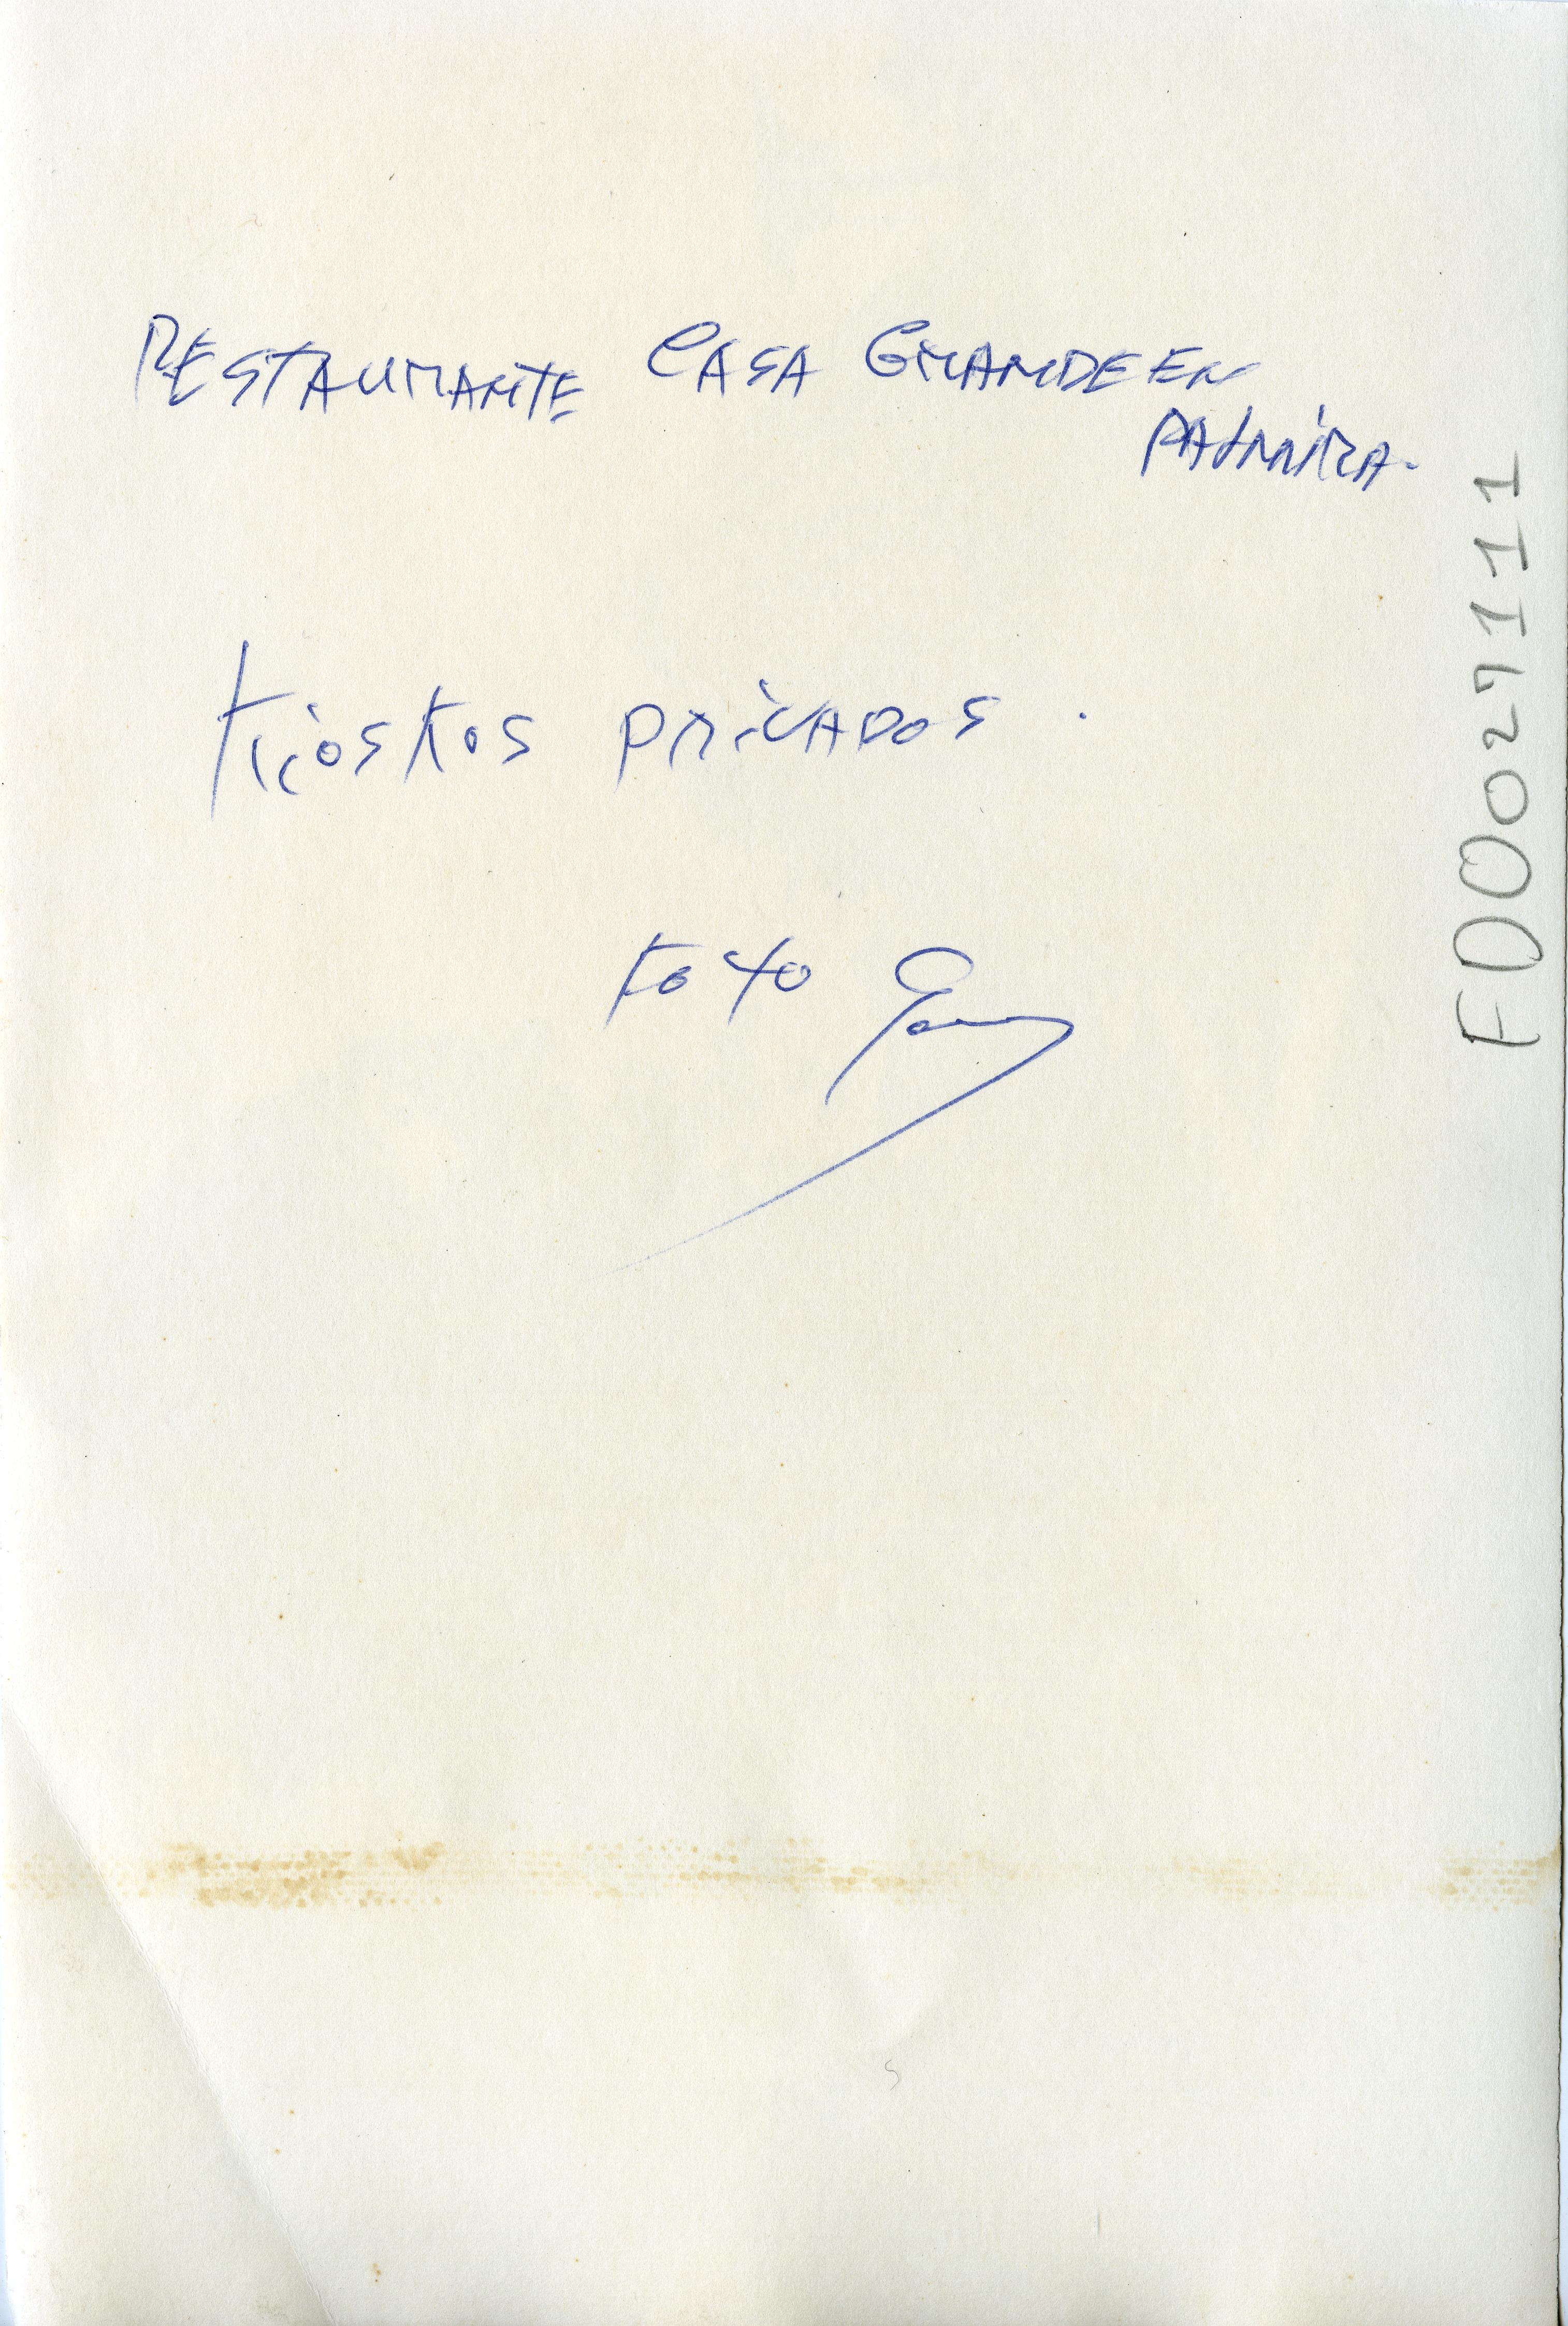 RESTAURANTE CASA GRANDE EN
PALMIRA.
Kioskos PRIVADOS.
FOTO
FD0027111